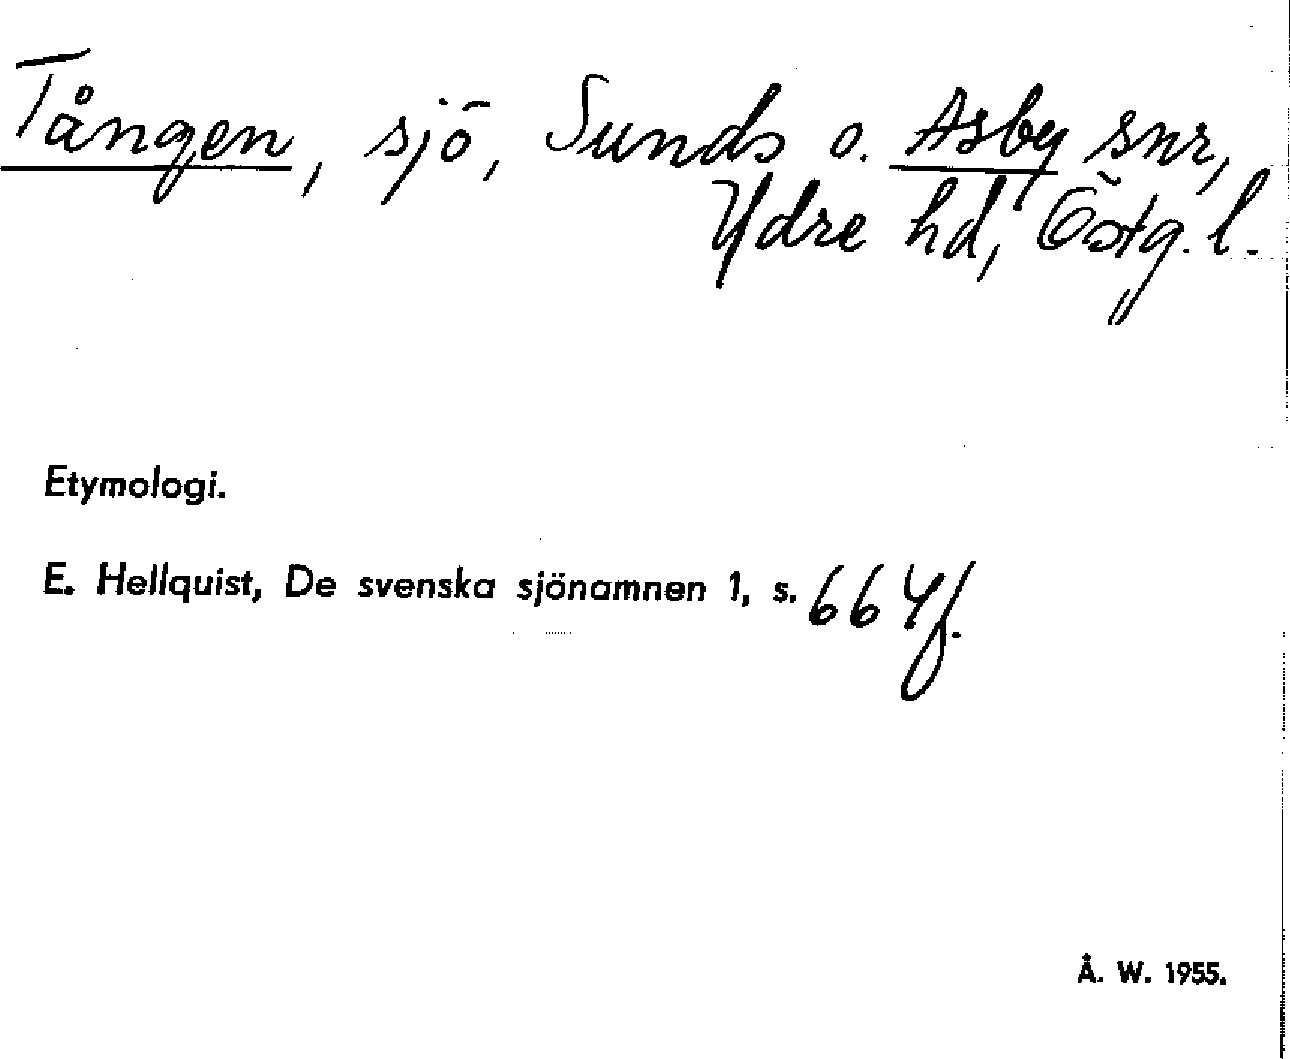 Tången, sjö, Sunds o. Asby snr,
Ydre hd, Östg. l.
Etymologi.
E. Hellquist, De svenska sjönamnen 1, s. 664f.
Å. W. 1955.